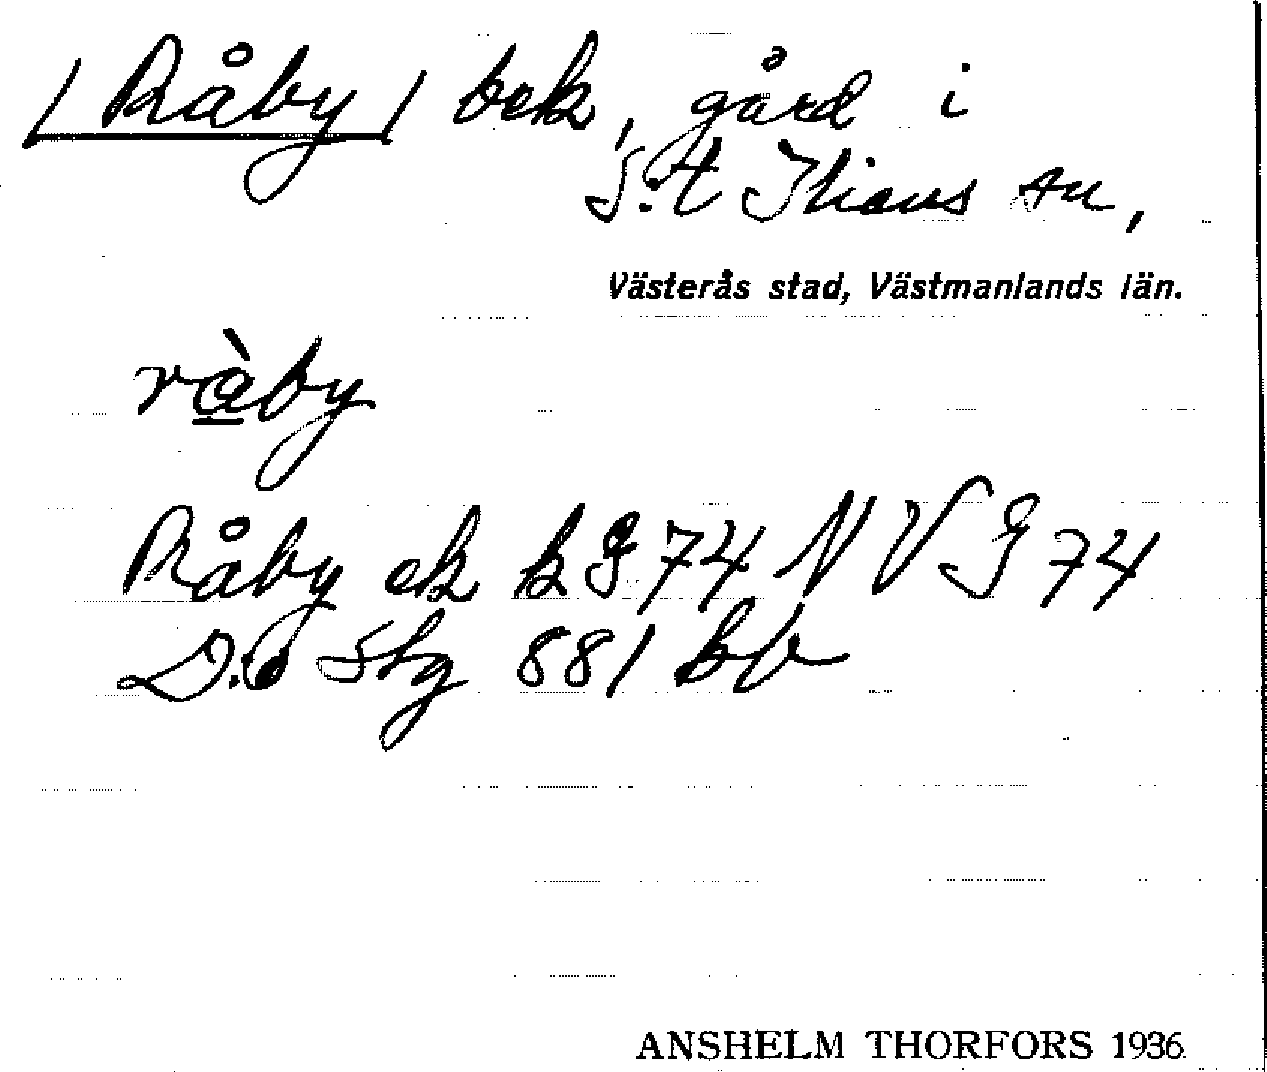 /Råby/ bek, gård i
S:t Ilians sn,
Västerås stad, Västmanlands län.
råby
Råby ek k G 74 N V S G 74
D:o Stg 881 bb
ANSHELM THORFORS 1936